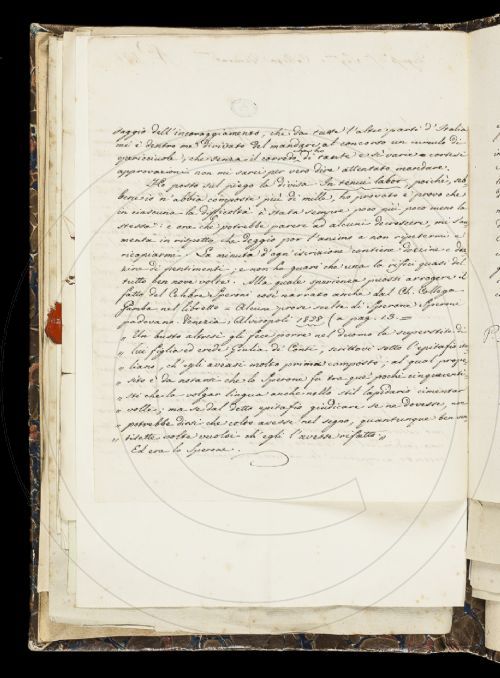 saggio dell'incoraggiamento, che da tutta l'altre parti d'Italia
mi è dentro me derivato del mandare al concorso un cumulo di
, che senza il corredo di tante e sì varie e cortesi
approvazioni non mi sarei per vero dire attentato mandare.
Ho posto sul piego la divisa In tenui labor, poichè, seb-
bene io n'abbia composte più di mille, ho provato e provo che
in niuna la difficoltà è stata sempre poco più poco meno la
stessa: e ora che potrebbe parere ad alcuni decrescere, mi s'au-
menta in rispetto che deggio por l'animo a non ripetermi e
ricopiarmi. La minuta d'ogni iscrizione contiene decine e de-
cine di pentimenti; e non ha guari che una la rifeci quasi del
tutto ben nove volte. Alla quale arrogere il
fatto del Celebre Speroni così narrato anche dal Ch. Collega
Gamba nel libretto = Alcune prose scelte di Sperone Speroni
padovano Venezia; Alvisopoli 1828 (a pag. 13. =
„ Un busto altresì gli fece porre nel duomo la superstite di
„ lui figlia ed erede Giulia de' Conti, scrittovi sotto l'epitafio ita-
„ liano, ch'egli aveasi molto prima composto; al qual propo-
„ sito è da notarsi che lo Sperone fu tra que' pochi cinquecenti-
„ sti che la volgar lingua anche nello stil lapidario cimentar
„ volle; ma se dal detto epitafio giudicare se ne dovesse, non
„ potrebbe dirsi che colto avesse nel segno, quantunque ben ven-
„ tisette volte vuolsi ch'egli l'avesse rifatto „
Ed era lo Sperone.